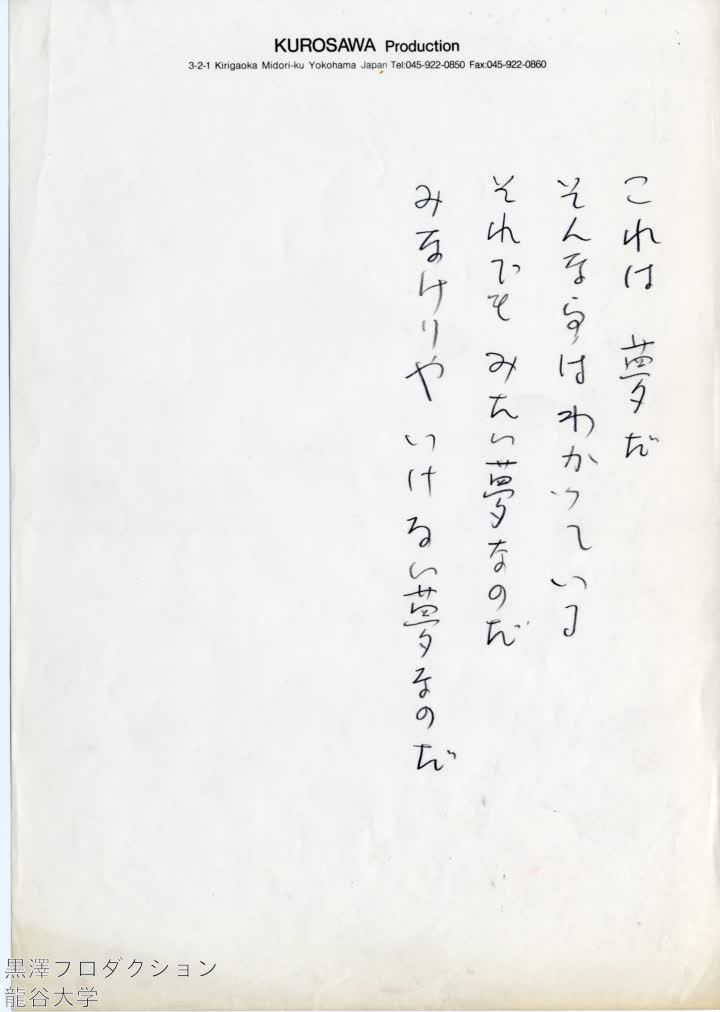 KUROSAWA Production
3-2-1 Kirigaoka Midori-ku Yokohama Japan Tel:045-922-0850 Fax:045-922-0860
これは 夢だ
そんな事はわかっている
それでも みたい夢なのだ
みなけりや いけない夢なのだ
黒澤フロダクション
龍谷大学